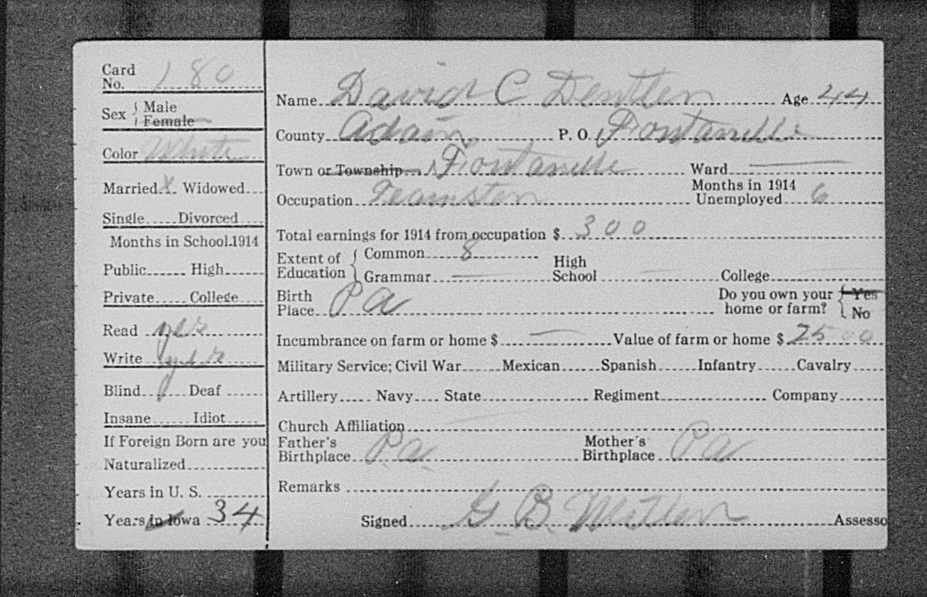 Card
No. 180
Sex { Male
Female
Color White
Married x Widowed
Single Divorced
Months in School 1914
Public High
Private College
Read yes
Write yes
Blind Deaf
Insane Idiot
If Foreign Born are you
Naturalized
Years in U. S.
Years in Iowa 34
Name David C Dentler Age 44
County Adair P. O. Fontanelle
Town or Township Fontanelle Ward
Occupation Teamster Months in 1914 Unemployed 6
Total earnings for 1914 from occupation $ 300
Extent of Education { Common 8
Grammar High School College
Birth Place Pa Do you own your home or farm? { Yes
No
Incumbrance on farm or home $ Value of farm or home $ 2500
Military Service; Civil War Mexican Spanish Infantry Cavalry
Artillery Navy State Regiment Company
Church Affiliation
Father's Birthplace Pa. Mother's Birthplace Pa
Remarks
Signed G. B. Assesso